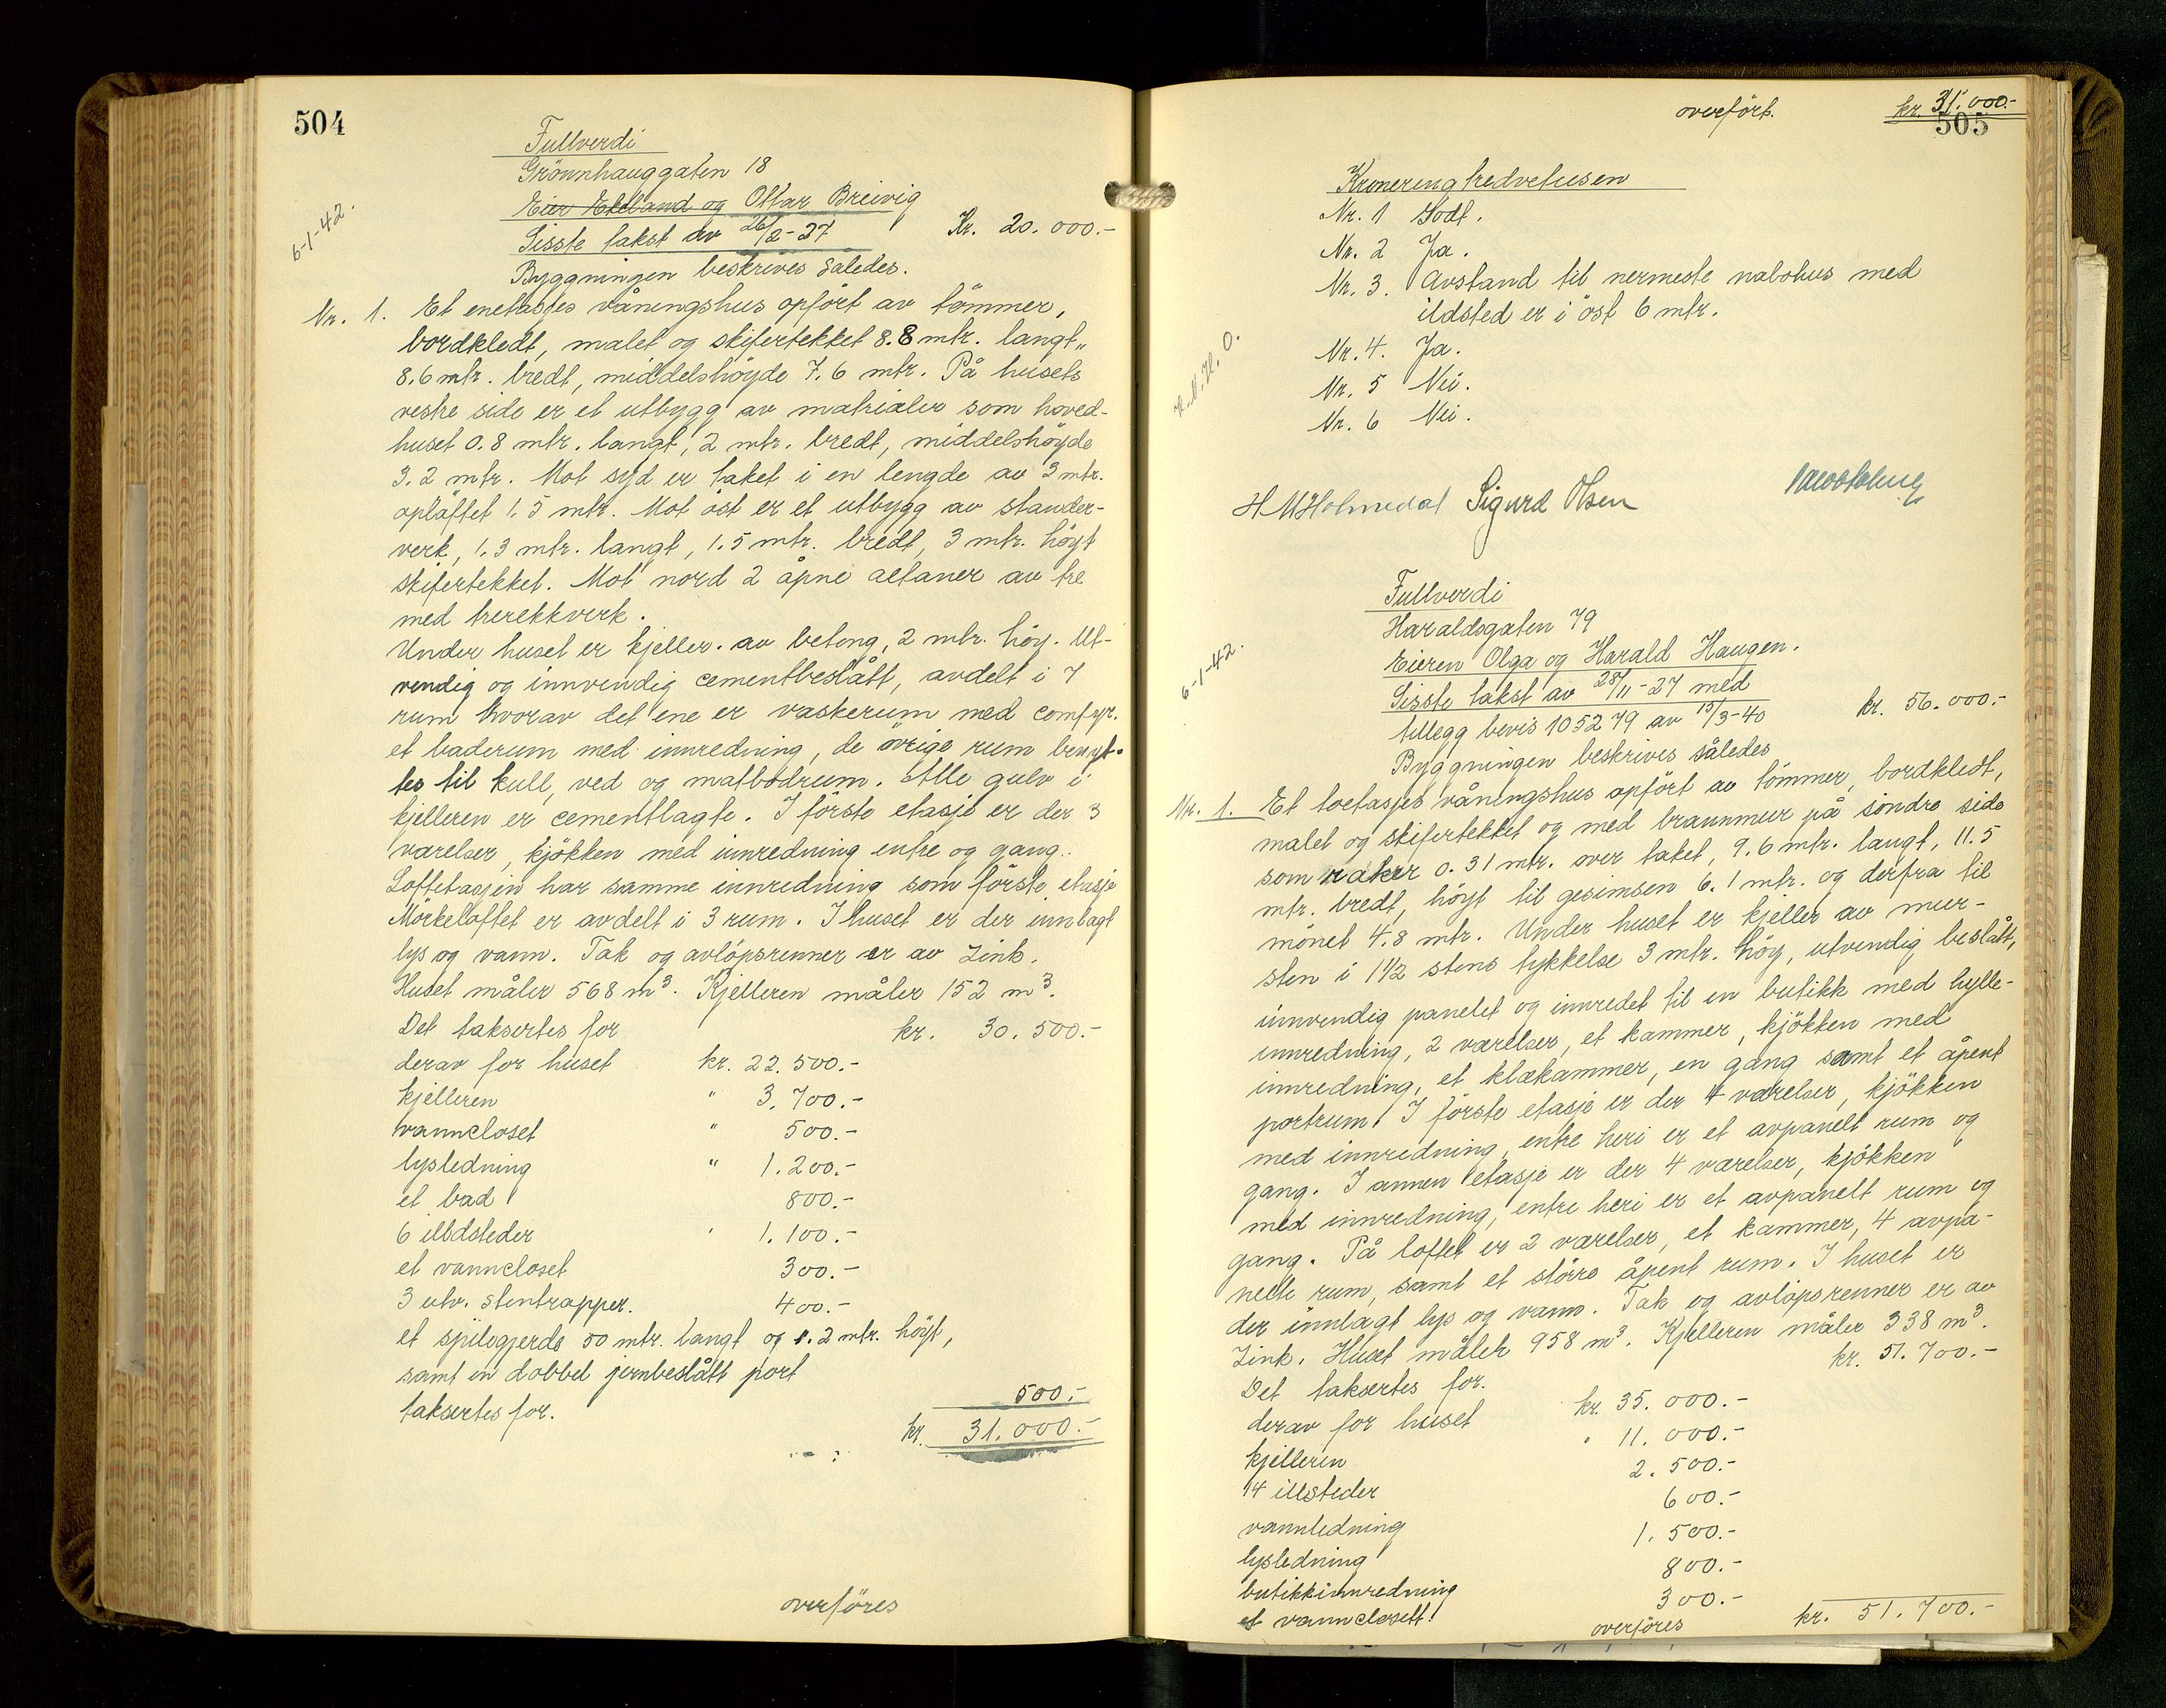 504
Fullverdi
Grönnhauggaten 18
Eier Ekeland og Ottar Breivig
6-1-42.
Sisste takst av 26/2-27 Kr. 20.000.-
Byggningen beskrives således.
Nr. 1. Et enetasjes våningshus opfört av tömmer,
bordkledt, malet og skifertekket 8.8 mtr. langt,,
8.6 mtr. bredt, middelshöyde 7.6 mtr. På husets
vestre side er et utbygg av matrialer som hoved-
huset 0.8 mtr. langt, 2 mtr. bredt, middelshöyde
3.2 mtr. Mot syd er taket i en lengde av 3 mtr.
oplöftet 1.5 mtr. Mot öst er et utbygg av stander-
verk, 1.3 mtr. langt, 1.5 mtr. bredt, 3 mtr. höyt
skifertekket. Mot nord 2 åpne altaner av tre
med trerekkverk.
Under huset er kjeller. av betong, 2 mtr. höy. Ut-
vendig og innvendig cementbeslått, avdelt i 7
rum hvorav det ene er vaskerum med comfyr.
et baderum med innredning, de övrige rum benyt-
tes til kull, ved og matbodrum. Alle gulv i
kjelleren er cementlagte. I förste etasje er der 3
værelser, kjökken med innredning entre og gang.
Loftetasjen har samme innredning som förste etasje
Mörkeloftet er avdelt i 3 rum. I huset er der innlagt
lys og vann. Tak og avlöpsrenner er av Zink.
Huset måler 568 m³. Kjelleren måler 152 m³.
Det taksertes for kr. 30.500.-
derav for huset kr. 22.500.-
kjelleren " 3.700.-
vanncloset " 500.-
lysledning " 1.200.-
et bad 800.-
6 ildsteder " 1.100.-
et vanncloset 300.-
3 utv. stentrapper. 400.-
et spilegjerde 50 mtr. langt og 1.2 mtr. höyt,
samt en dobbel jernbeslått port
taksertes for. 500.-
kr. 31.000.-
overföres
overfört. kr. 31.000.-
505
Kronering tredvetusen
Nr. 1 Godt.
Nr. 2 Ja.
Nr. 3. Avstand til nermeste nabohus med
ildsted er i öst 6 mtr.
Nr. 4. Ja.
Nr. 5 Nei.
Nr. 6 Nei.
H M Holmedal Sigurd Olsen
Fullverdi
Haraldsgaten 79
6-1-42.
Eieren Olga og Harald Haugen.
Sisste takst av 28/11-27 med
tillegg bevis 105279 av 15/3-40 kr. 56.000.-
Byggningen beskrives således
Nr. 1. Et toetasjes våningshus opfört av tömmer, bordkledt,
malet og skifertekket og med brannmur på söndre side
som raker 0.31 mtr. over taket, 9.6 mtr. langt, 11.5
mtr. bredt, höyt til gesimsen 6.1 mtr. og derfra til
mönet 4.8 mtr. Under huset er kjeller av mur-
sten i 1½ stens tykkelse 3 mtr. höy, utvendig beslått,
innvendig panelet og innredet til en butikk med hylle-
innredning, 2 værelser, et kammer, kjökken med
innredning, et klækammer, en gang samt et åpent
portrum. I förste etasje er der 4 værelser, kjökken
med innredning, entre heri er et avpanelt rum og
gang. I annen etasje er der 4 værelser, kjökken
med innredning, entre heri er et avpanelt rum og
gang. På loftet er 2 værelser, et kammer, 4 avpa-
nelte rum, samt et större åpent rum. I huset er
der innlagt lys og vann. Tak og avlöpsrenner er av
Zink. Huset måler 958 m³. Kjelleren måler 338 m³.
Det taksertes for. kr. 51.700.-
derav for huset kr. 35.000.-
kjelleren " 11.000.-
14 illsteder 2.500.-
vannledning 600.-
lysledning 1.500.-
butikkinnredning 800.-
et vannclosett. 300.-
overföres kr. 51.700.-